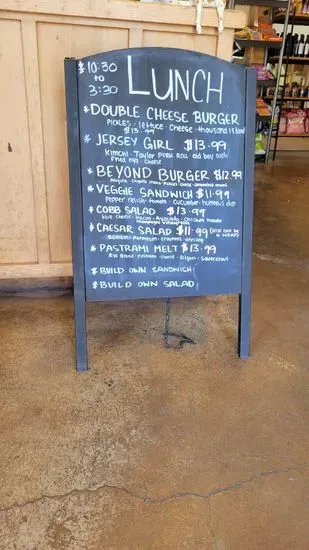 *10:30 to 3:30
LUNCH
*DOUBLE CHEESE BURGER
PICKLES · lettuce · Cheese · thousand island
$13.99
*JERSEY GIRL $13.99
Kimchi · Taylor Pork Roll
Fried egg · Cheese
*BEYOND BURGER $12.99
*VEGGIE SANDWICH $11.99
Pepper relish · tomato · Cucumber · hummus dip
*COBB SALAD $13.99
blue cheese · bacon · Avocado · chicken tomato
*CAESAR SALAD $11.99 (ALSO CAN BE A WRAP)
Romain · Parmesan · croutons · dressing
*PASTRAMI MELT $13.99
Rye Bread · Dijon · Sauerkraut
*BUILD OWN SANDWICH
*BUILD OWN SALAD